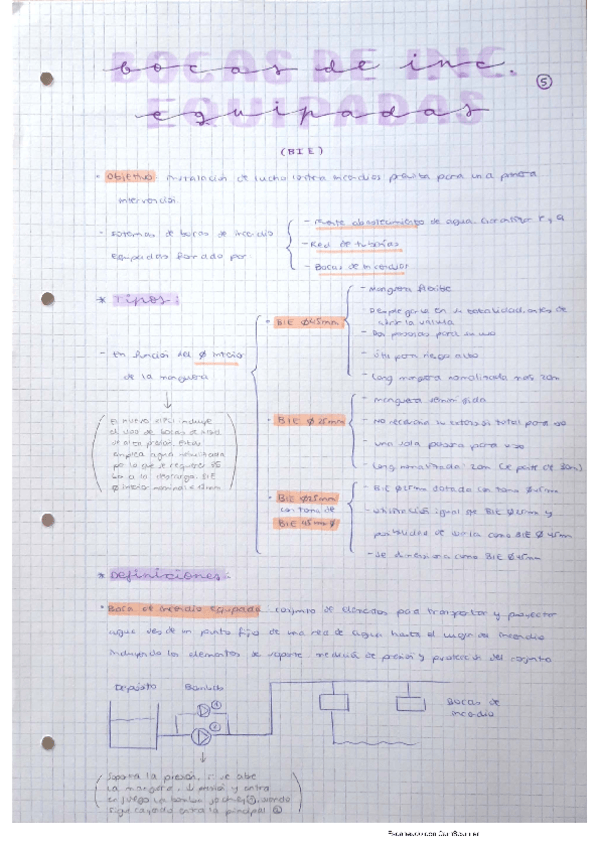 BOCAS DE INC.
EQUIPADAS
bocas de inc.
equipadas
5
(BIE)
- Objetivo: instalación de lucha contra incendios prevista para una primera
intervención.
- Sistemas de bocas de incendio
equipadas formado por
- Fuente abastecimiento de agua. Garantizar P y Q
- Red de tuberías
- Bocas de incendio
* Tipos:
- En función del ϕ interio
de la manguera
El nuevo RIPCI incluye
el uso de bocas de
de alta presión. Estas
emplea agua
por lo que se requiere
- BIE ϕ45mm
- Manguera flexible
- Desplegarse en su totalidad antes de
abrir la válvula
- Dos personas para su uso
- útil para riesgo alto
- Long manguera normalizada máx 20m
- BIE ϕ 25mm
- manguera semirrígida
- No necesaria su extensión total para uso
- una sola persona para uso
- BIE ϕ25mm
con toma de
BIE 45mm ϕ
- BIE ϕ25mm dotado con toma ϕ45mm
- utilización igual que BIE ϕ25mm y
posibilidad de usarla como BIE ϕ 45mm
- Se como BIE ϕ 45mm
* Definiciones:
- Boca de Incendio Equipada: conjunto de elementos para transportar y proyectar
agua desde un punto fijo de una red de agua hasta el lugar de incendio
incluyendo los elementos de soporte, medición de presión y protección del conjunto
Depósito
Bombeo
Bocas de
incendio
Soporta la presión, si se abre
la manguera, presión y entra
en juego la bomba jockey
sigue cayendo entra la principal
Escaneado con CamScanner